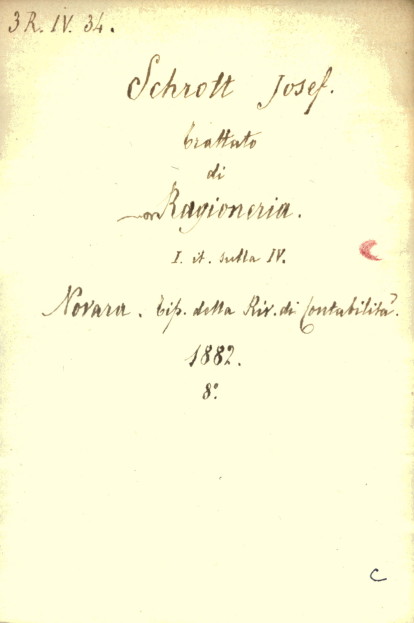 3 R. IV. 34.
Schrott Josef.
Trattato
di
Ragioneria.
I. it. sulla IV.
Novara. Tip. della Riv. di Contabilità.
1882.
8°.
C